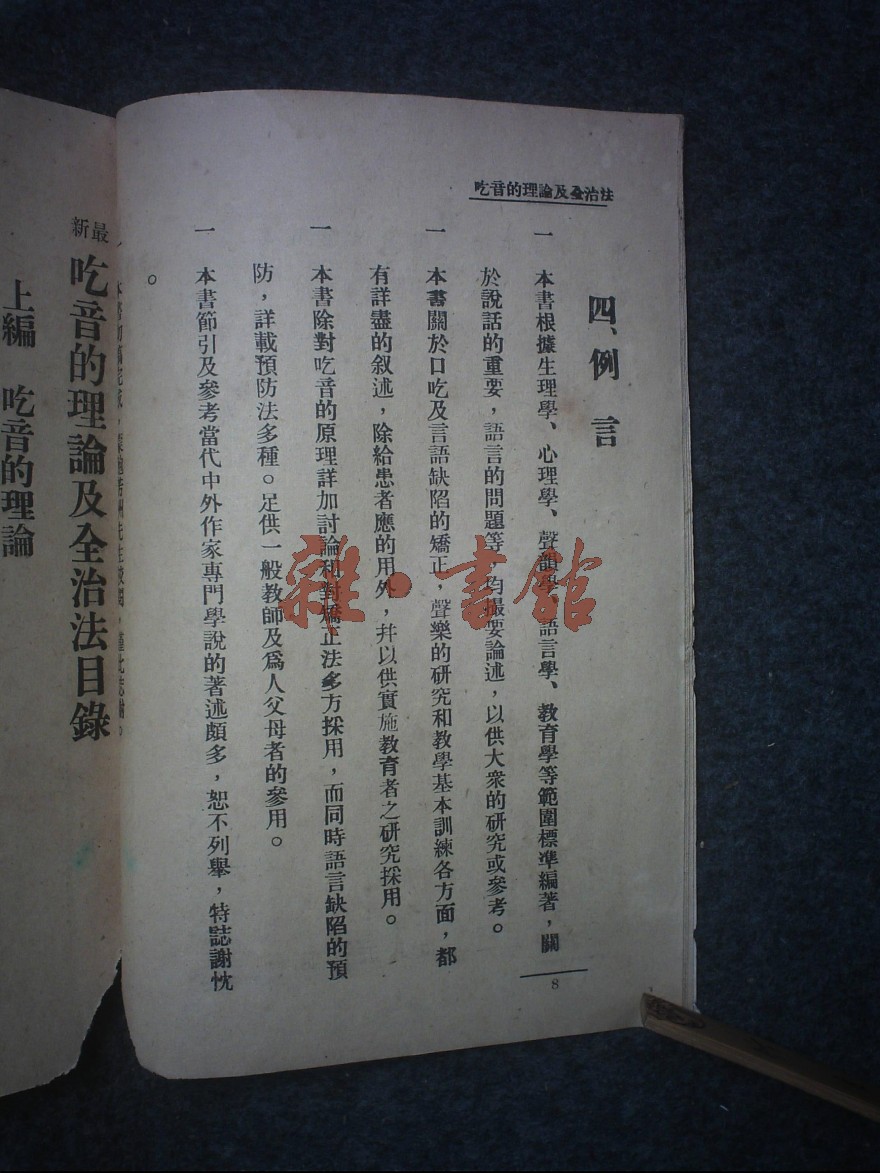 吃音的理論及全治法
四、例言
一 本書根據生理學、心理學、聲韻學、語言學、教育學等範圍標準編著，關
於說話的重要，語言的問題等，均撮要論述，以供大衆的研究或參考。
一 本書關於口吃及言語缺陷的矯正，聲樂的研究和教學基本訓練各方面，都
有詳盡的叙述，除給患者應的用外，幷以供實施教育者之研究採用。
一 本書除對吃音的原理詳加討論和對矯正法多方採用，而同時語言缺陷的預
防，詳載預防法多種。足供一般教師及爲人父母者的參用。
一 本書節引及參考當代中外作家專門學說的著述頗多，恕不列舉，特誌謝忱
。
8
最新 吃音的理論及全治法目錄
上編 吃音的理論
雜·書館